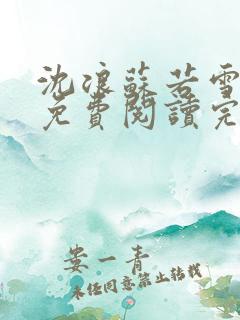 沈浪蘇若雪
免費閱讀完
娄一青
未经同意禁止转载